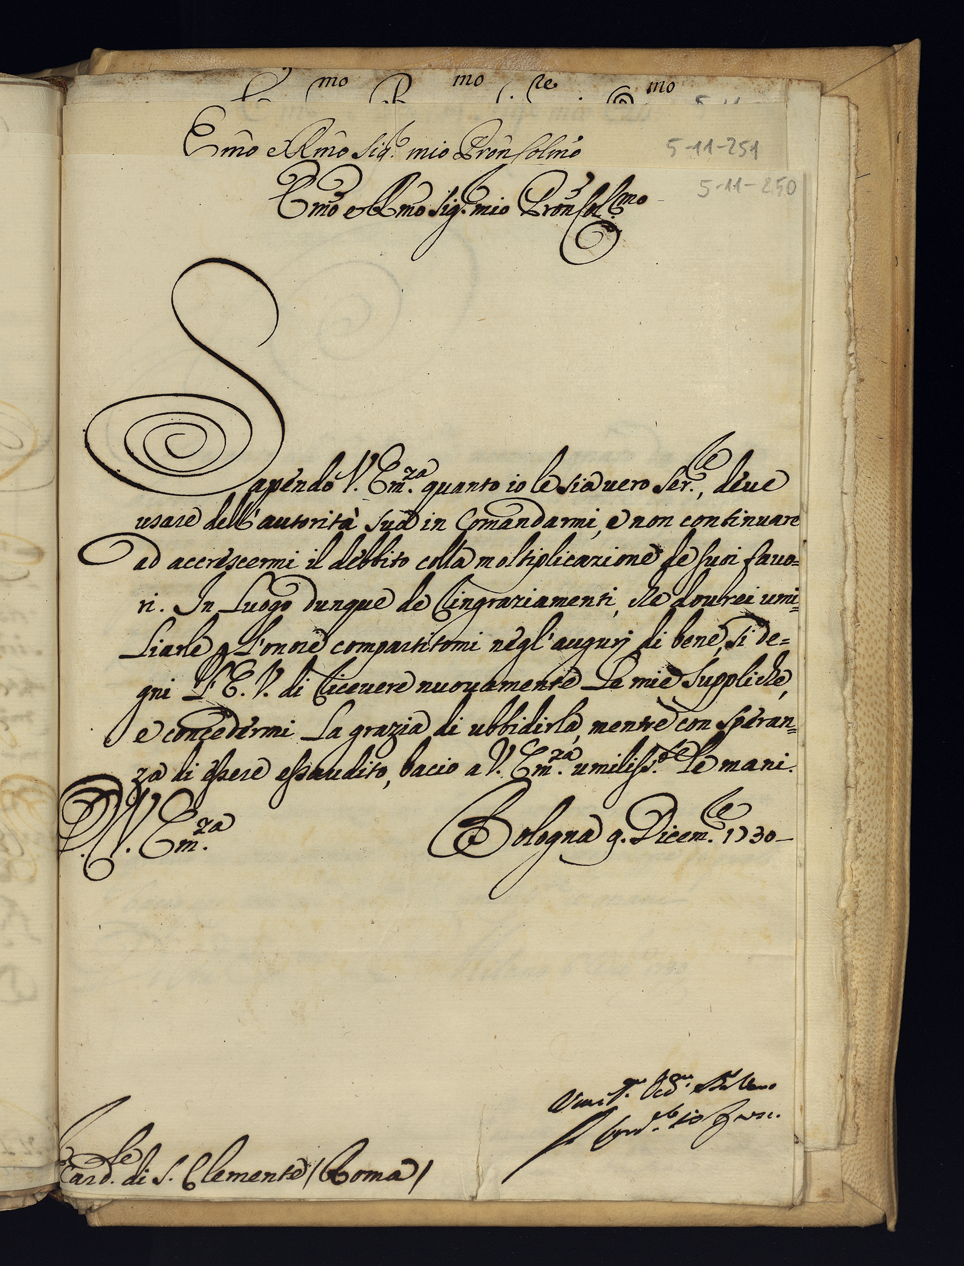 mo mo re mo
Emo e Rmo Sig.r mio Pron Colmo
5-11-251
5-11-250
Emo e Rmo Sig.r mio Pron Col.mo
Sapendo V. Em.za quanto io le sia vero Ser.le, deve
usare dell'autorità sua in Comandarmi, e non continuare
ad accrescermi il debbito colla moltiplicazione de suoi favo=
ri. In Luogo dunque de Ringraziamenti, che dovrei umi=
Liarle p L'onore compartitomi negl'augurj di bene, si de=
gni L'E. V. di Ricevere nuovamente La mie Suppliche,
e concedermi La grazia di ubbidirla, mentre con speran=
za di essere essaudito, bacio a V. Em.za umiliss.te Le mani.
D. V. Em.za Bologna 9. Dicem.le 1730
Card.le di S. Clemente / Roma /